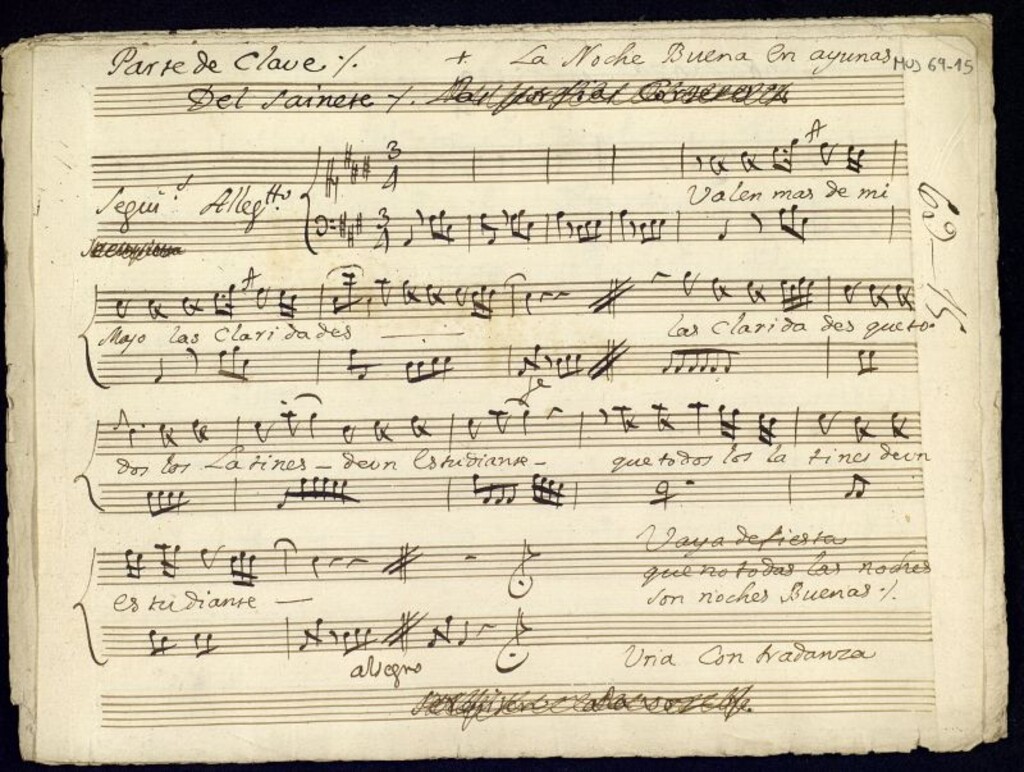 Parte de Clave % + La Noche Buena en ayunas MUS 69-15
Del sainete %.
Segui.s Alleg.tto
3 4
Valen mas de mi
3 4
69-15
Majo las Claridades — las Clarida des que to-
fe
dos los Latines - deun Estudiante - que todos los la tines deun
estudiante —
Vaya de fiesta
que no todas las noches
son noches Buenas %.
allegro
Una Contradanza